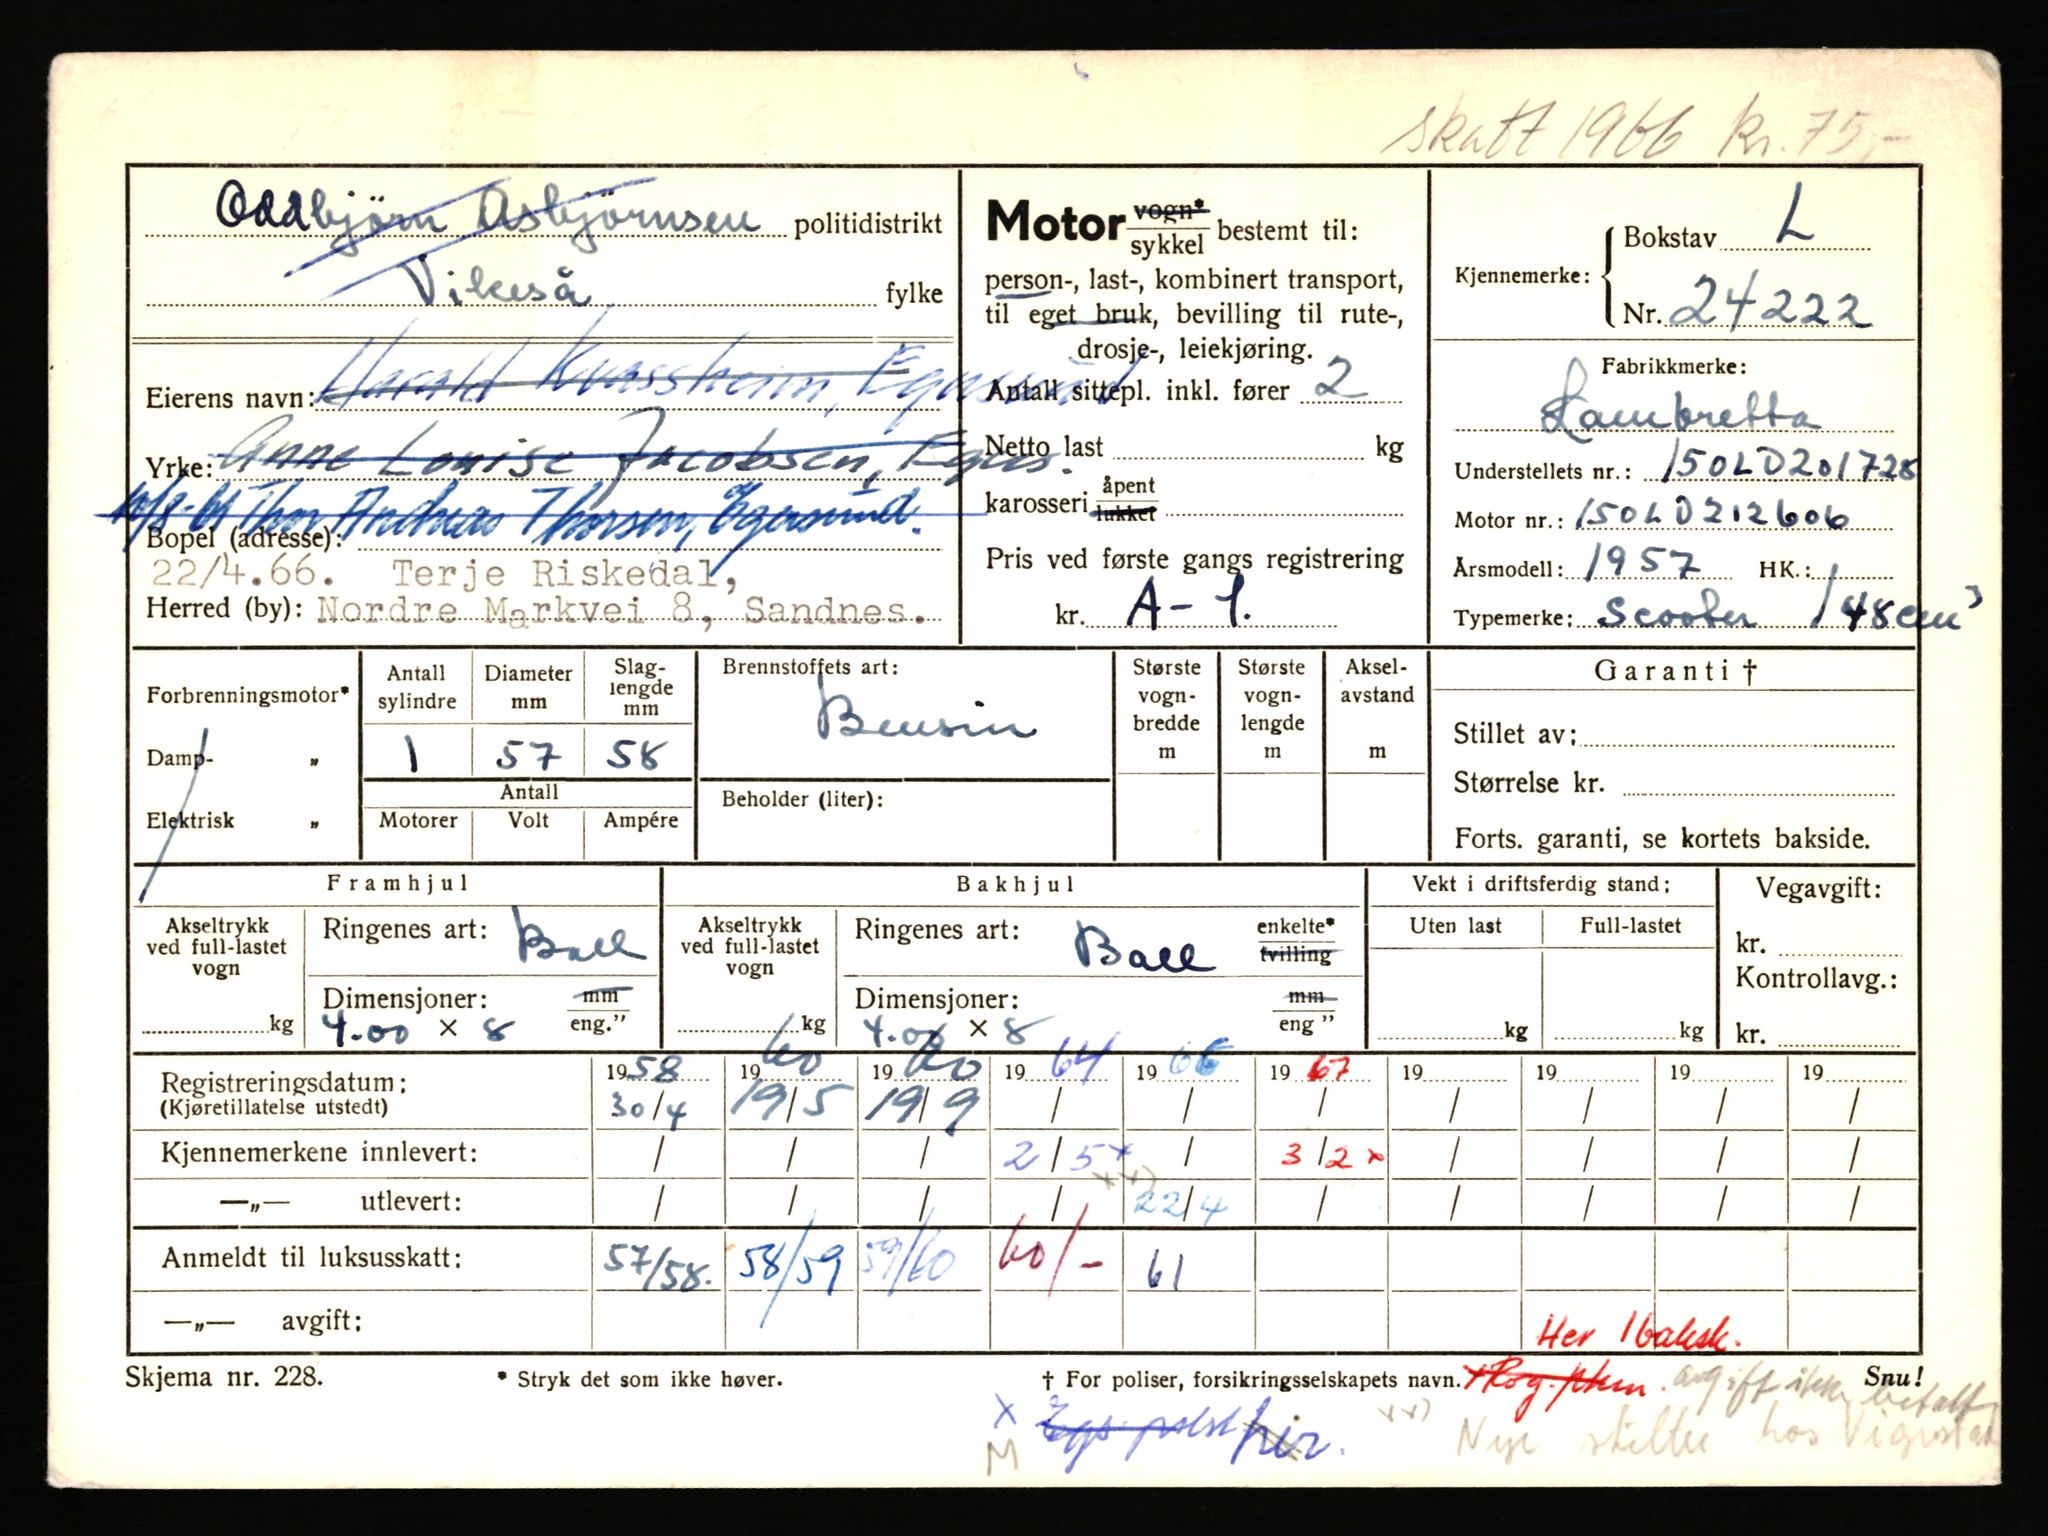 skatt 1966 kr. 75,-
Oddbjörn Asbjörnsen politidistrikt
Vikeså fylke
Eierens navn: Harald Kvassheim, Egersund
Yrke: Anne Louise Jacobsen, Egers.
Thor Andreas Thorsen, Egersund.
Bopel (adresse):
22/4.66. Terje Riskedal,
Herred (by): Nordre Markvei 8, Sandnes.
Motor vogn*
sykkel bestemt til:
person-, last-, kombinert transport,
til eget bruk, bevilling til rute-,
drosje-, leiekjøring.
Antall sittepl. inkl. fører 2
Netto last kg
karosseri åpent
lukket
Pris ved første gangs registrering
kr. A-1.
Kjennemerke: Bokstav L
Nr. 24222
Fabrikkmerke:
Lambretta
Understellets nr.: 150LD201728
Motor nr.: 150LD212606
Årsmodell: 1957 HK.:
Typemerke: Scooter 148 cm³
Forbrenningsmotor*
Damp- „
Elektrisk „
Antall sylindre Diameter mm Slag-lengde mm
1 57 58
Antall
Motorer Volt Ampére
Brennstoffets art:
Bensin
Beholder (liter):
Største vogn-bredde m
Største vogn-lengde m
Aksel-avstand m
Garanti †
Stillet av:
Størrelse kr.
Forts. garanti, se kortets bakside.
Framhjul
Akseltrykk ved full-lastet vogn
kg
Ringenes art: Ball
Dimensjoner: mm
4.00 × 8 eng."
Bakhjul
Akseltrykk ved full-lastet vogn
kg
Ringenes art: Ball enkelte*
tvilling
Dimensjoner: mm
4.00 × 8 eng "
Vekt i driftsferdig stand:
Uten last Full-lastet
kg kg
Vegavgift:
kr.
Kontrollavg.:
kr.
Registreringsdatum: 1958 1960 1960 1964 1966 1967 19 19 19 19
(Kjøretillatelse utstedt) 30/4 19/5 19/9 / / / / / / /
Kjennemerkene innlevert: / / / 2/5 x / 3/2 x / / / /
xx)
—„— utlevert: / / / / 22/4 / / / / /
Anmeldt til luksusskatt: 57/58. 58/59 59/60 60/- 61
—„— avgift:
Her 1 baksk.
Skjema nr. 228.
* Stryk det som ikke høver.
† For poliser, forsikringsselskapets navn.
x Rog. pkm. avgift ikke betalt
Snu!
x Egs. polst her.
xx) Nye skilter hos Vigrestad
M